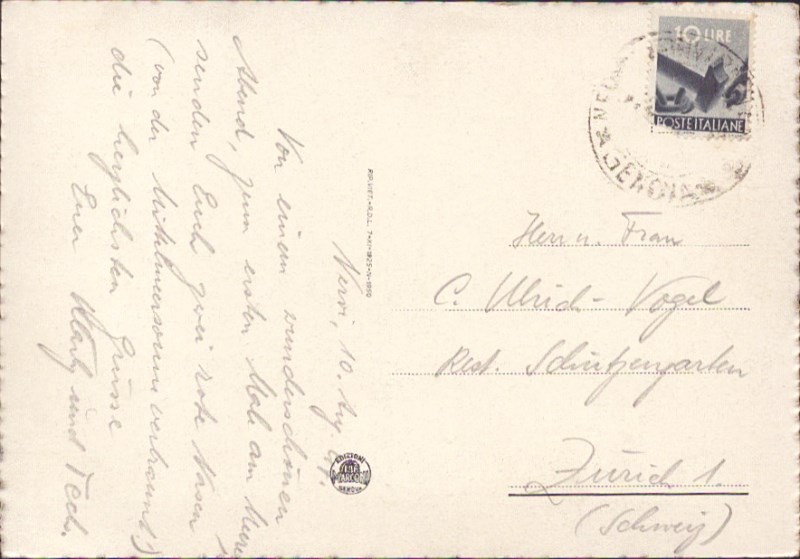 Nervi, 10. Aug. 49.
Von einem wunderschönen
Abend, zum ersten Mal am Meer
senden Euch zwei rote Nasen
(von der Mittelmeersonne verbrannt!)
die herzlichsten Grüsse
Euer und
10 LIRE
POSTE ITALIANE
GENOVA
Herrn u. Frau
C. Ulrich-Vogel
Rest. Schützengarten
Zürich 1.
(Schweiz)
EDIZIONI
GENOVA